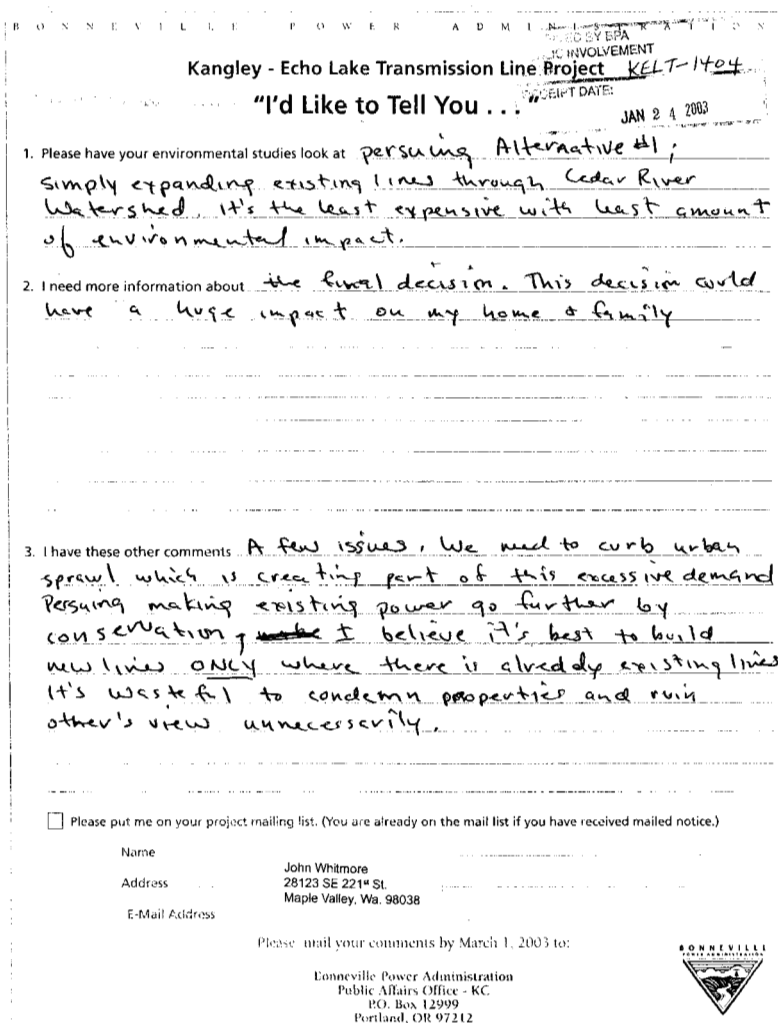 BONNEVILLE POWER ADMINISTRATION
BY BPA
INVOLVEMENT
Kangley - Echo Lake Transmission Line Project KELT-1404
RECEIPT DATE:
"I'd Like to Tell You . . . "
JAN 24 2003
1. Please have your environmental studies look at persuing Alternative #1;
simply expanding existing lines through Cedar River
Watershed. It's the least expensive with least amount
of environmental impact.
2. I need more information about the final decision. This decision could
have a huge impact on my home & family
3. I have these other comments A few issues. We need to curb urban
sprawl which is creating part of this excessive demand
Persuing making existing power go further by
conservation, I believe it's best to build
new lines ONLY where there is alreddy existing lines
It's wasteful to condemn properties and ruin
other's view unnecessarily.
Please put me on your project mailing list. (You are already on the mail list if you have received mailed notice.)
Name
John Whitmore
Address 28123 SE 221st St.
Maple Valley, Wa. 98038
E-Mail Address
Please mail your comments by March 1, 2003 to:
Bonneville Power Administration
Public Affairs Office - KC
P.O. Box 12999
Portland, OR 97212
BONNEVILLE
POWER ADMINISTRATION